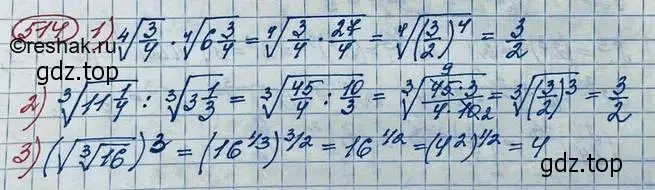 514 1) ⁴√(3/4) · ⁴√(6 3/4) = ⁴√(3/4 · 27/4) = ⁴√((3/2)⁴) = 3/2
2) ³√(11 1/4) : ³√(3 1/3) = ³√(45/4 : 10/3) = ³√(45⁹ · 3 / 4 · 10₂) = ³√((3/2)³) = 3/2
3) (√(³√16))³ = (16^(1/3))^(3/2) = 16^(1/2) = (4²)^(1/2) = 4
gdz.top